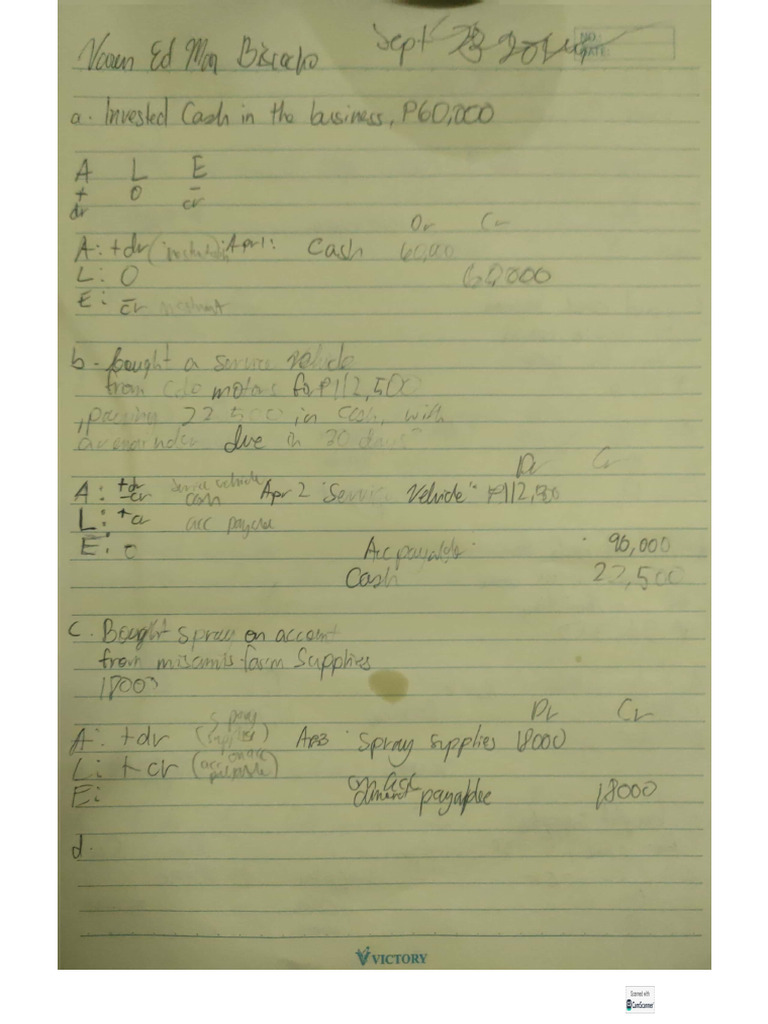 Sept 23
NO.
DATE:
a. Invested Cash in the business, P60,000
A L E
+ 0 -
dr cr
Dr Cr
A: +dr Apr 1: Cash 60,000
L: 0 60,000
E: cr
b - bought a service vehicle
from Cdo motors for P112,500
, paying 22 500 in cash, with
due in 30 days
Dr Cr
A: +dr -cr service vehicle cash Apr 2 Service Vehicle P112,500
L: +cr acc payable
E: 0 Acc payable 90,000
Cash 22,500
c. Bought spray on account
from misamis farm Supplies
18000
Dr Cr
A: +dr (spray supplies) Apr3 Spray supplies 18000
L: + cr (acc on acc payable)
E: payable 18000
d.
VICTORY
Scanned with
CamScanner